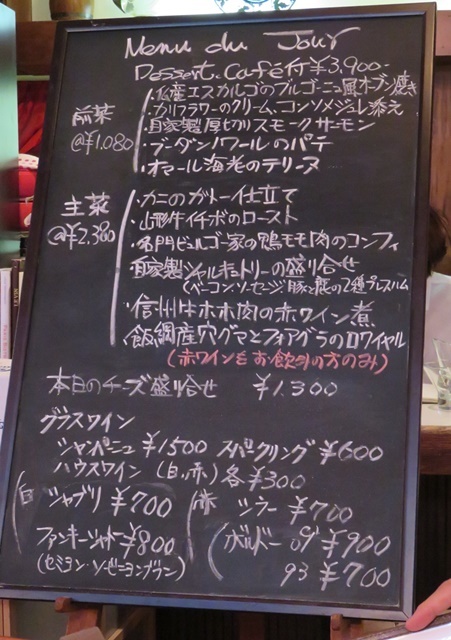 Menu du Jour
Dessert. Café付 ¥3,900-
前菜
@¥1,080
・仏産エスカルゴのブルゴーニュ風オーブン焼き
・カリフラワーのクリーム、コンソメジュレ添え
・自家製厚切りスモークサーモン
・ブーダンノワールのパテ
・オマール海老のテリーヌ
主菜
@¥2,380
・カニのガトー仕立て
・山形牛イチボのロースト
・名門ビュルゴー家の鴨モモ肉のコンフィ
・自家製シャルキュトリーの盛り合せ
(ベーコン、ソーセージ、豚と鹿の2種プレスハム
・信州牛ホホ肉の赤ワイン煮
・飯綱産穴グマとフォアグラのロワイヤル
(赤ワインをお飲みの方のみ)
本日のチーズ盛り合せ ¥1,300
グラスワイン
シャンパーニュ ¥1500 スパークリング ¥600
ハウスワイン (白,赤) 各¥300
白 シャブリ ¥700
ファンキーシャトー ¥800
(セミヨン・ソービニヨンブラン)
赤 シラー ¥700
ボルドー 09' ¥900
93 ¥700